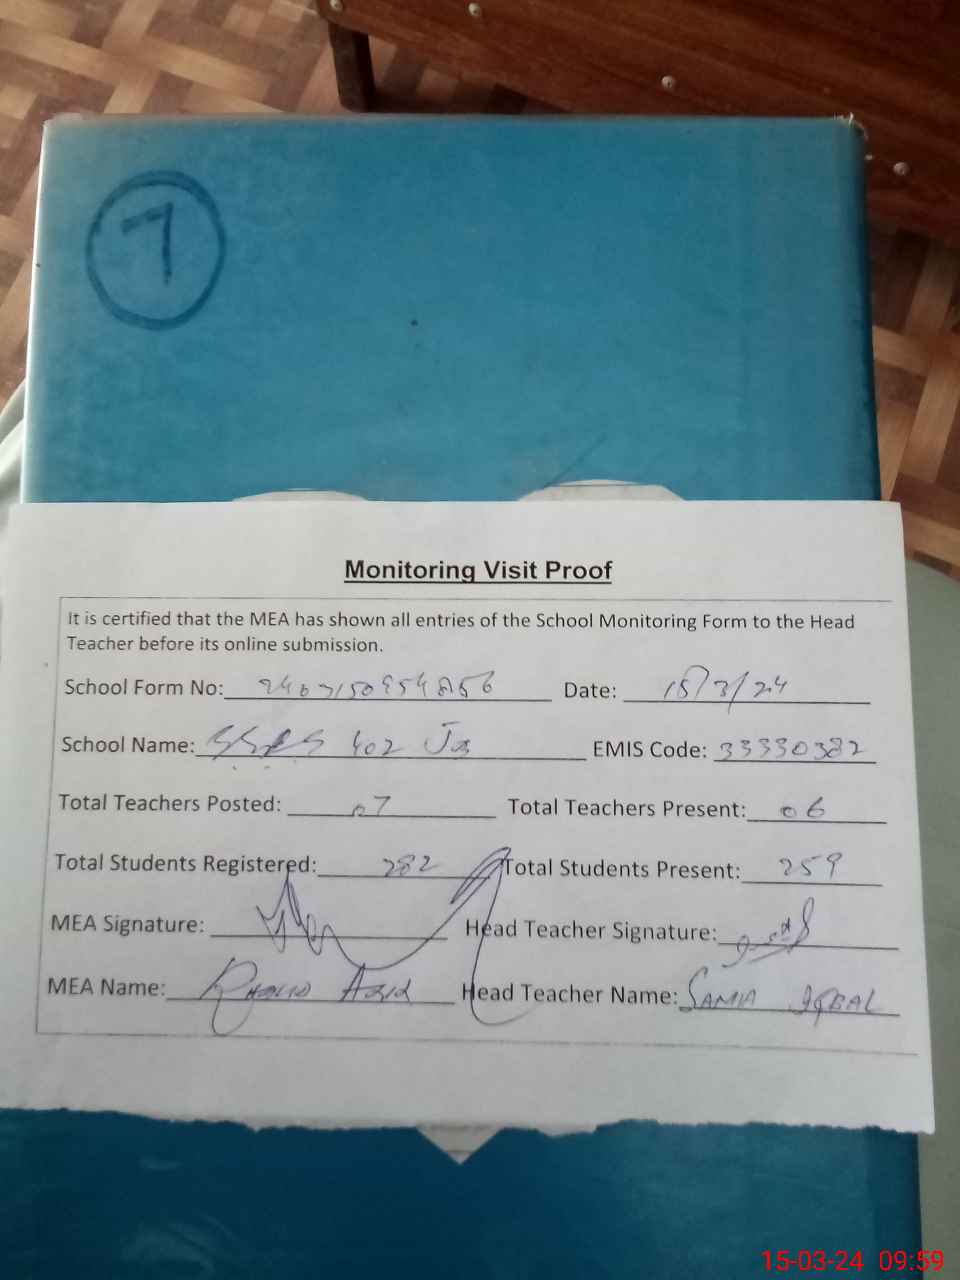 7
Monitoring Visit Proof
It is certified that the MEA has shown all entries of the School Monitoring Form to the Head
Teacher before its online submission.
School Form No: Date: 15/3/24
School Name: 402 JB EMIS Code: 33330382
Total Teachers Posted: 07 Total Teachers Present: 06
Total Students Registered: 282 Total Students Present: 259
MEA Signature: Head Teacher Signature:
MEA Name: Head Teacher Name: SAMIA IQBAL
15-03-24 09:59